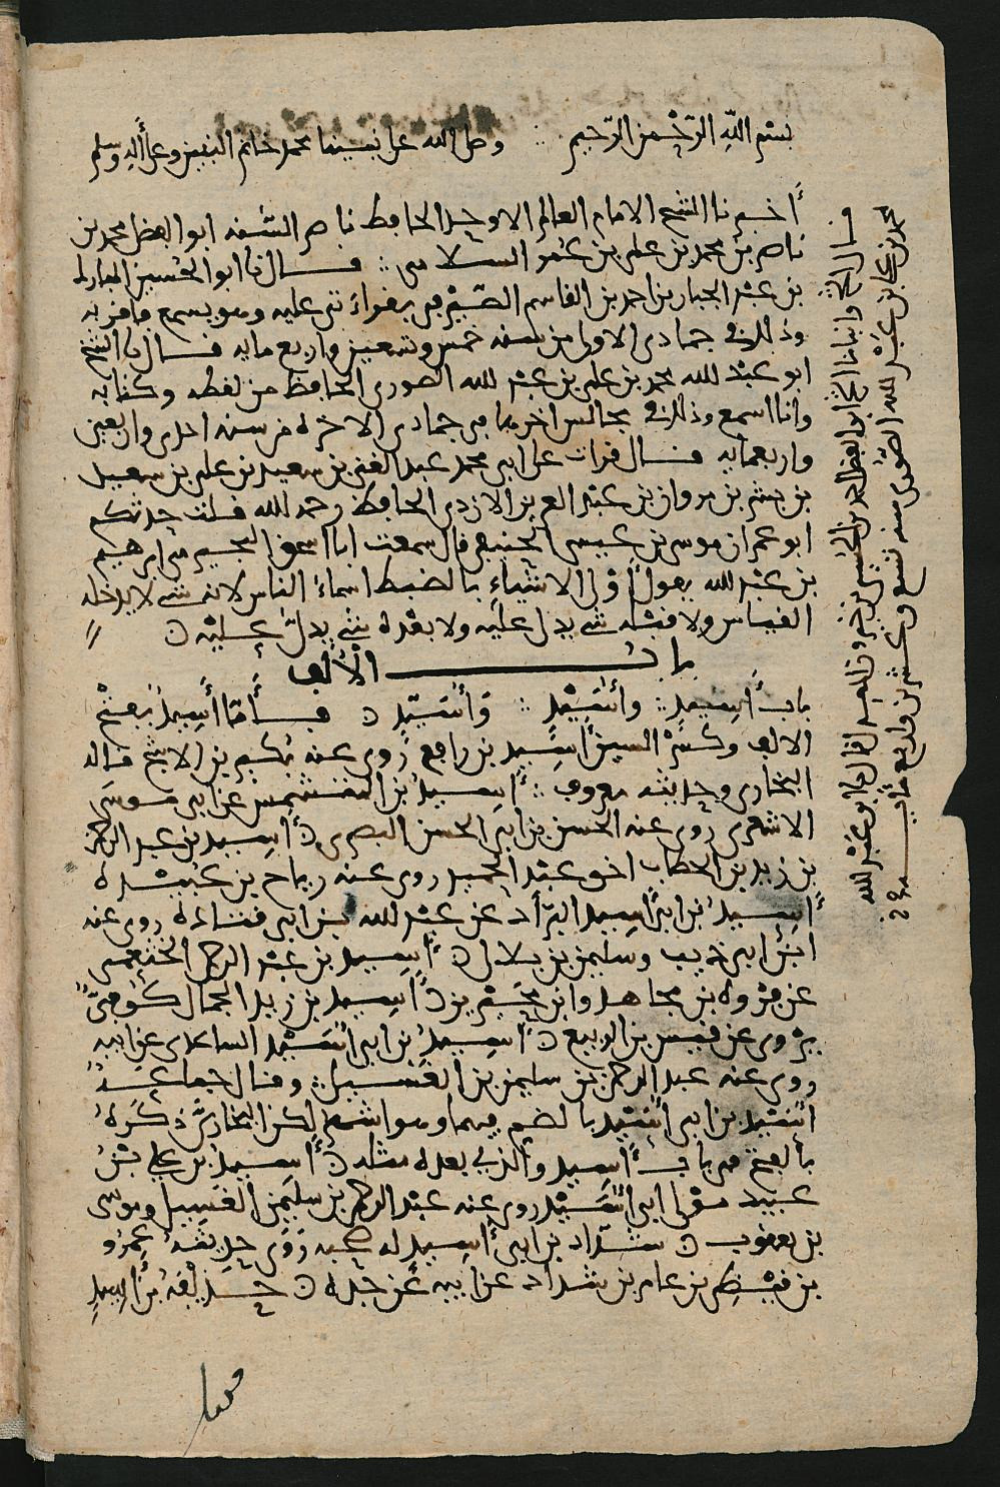 بسم الله الرحمن الرحيم وصلى الله على نبينا محمد خاتم النبيين وعلى آله وسلم
أخبرنا الشيخ الامام العالم الاوحد الحافظ ناصر السنة ابو الفضل محمد بن
ناصر بن محمد بن علي بن عمر السلامي قال نا ابو الحسين المبارك
بن عبد الجبار بن احمد بن القاسم الصيرفي بقراءتي عليه وهو يسمع فاقر به
وذلك في جمادى الاولى من سنه خمس وتسعين واربع مايه قال نا الشيخ
ابو عبد الله محمد بن علي بن عبد الله الصوري الحافظ من لفظه وكتابه
وانا اسمع وذلك في مجالس اخرها في جمادى الاخرة من سنه احدى واربعين
واربعمايه قال قرات على ابي محمد عبد الغني بن سعيد بن علي بن سعيد
بن بشر بن مروان بن عبد العزيز الازدي الحافظ رحمه الله قلت حدثكم
ابو عمران موسى بن عيسى الحنيفي قال سمعت ابا اسحق النجيرمي ابرهيم
بن عبد الله يقول أولى الاشياء بالضبط اسماء الناس لانه شي لا يدخله
القياس ولا قبله شي يدل عليه ولا بعده شي يدل عليه
باب الألف
باب أَسِيد وأُسَيْد وأُسَيِّد فأما أَسِيد بفتح
الالف وكسر السين أسيد بن رافع روى عنه بكير بن الاشج قاله
البخاري وحديثه معروف أسيد بن المتشمس عن ابي موسى
الاشعري روى عنه الحسن بن ابي الحسن البصري أسيد بن عبد الرحمن
بن زيد بن الخطاب اخو عبد الحميد روى عنه رياح بن عبيدة
أسيد بن ابي أسيد البراد عن عبد الله بن ابي قتادة روى عنه
ابن ابي ذيب وسليمن بن بلال أسيد بن عبد الرحمن الخثعمي
عن فروة بن مجاهد وابن محيريز أسيد بن زيد الجمال كوفي
يروى عن قيس بن الربيع أسيد بن ابي أسيد الساعدي عن ابيه
روى عنه عبد الرحمن بن سليمن بن الغسيل وقال جماعة
أسيد بن ابي أسيد بالضم فيهما وهو اشهر لكن البخاري ذكره
بالفتح في باب أسيد والذي بعده مثله أسيد بن علي بن
عبيد مولى ابي أسيد روى عنه عبد الرحمن بن سليمن الغسيل وموسى
بن يعقوب شداد بن ابي أسيد له صحبه روى حديثه عمرو
بن قيظي بن عامر بن شداد عن ابيه عن جده حذيفة بن أسيد
قال الشيخ وانبانا الشيخ ابو الفضل احمد بن الحسن بن خيرون المعدل قال نا ابو عبد الله
محمد بن علي بن عبد الله الصوري سنه تسع وعشرين واربع مايه